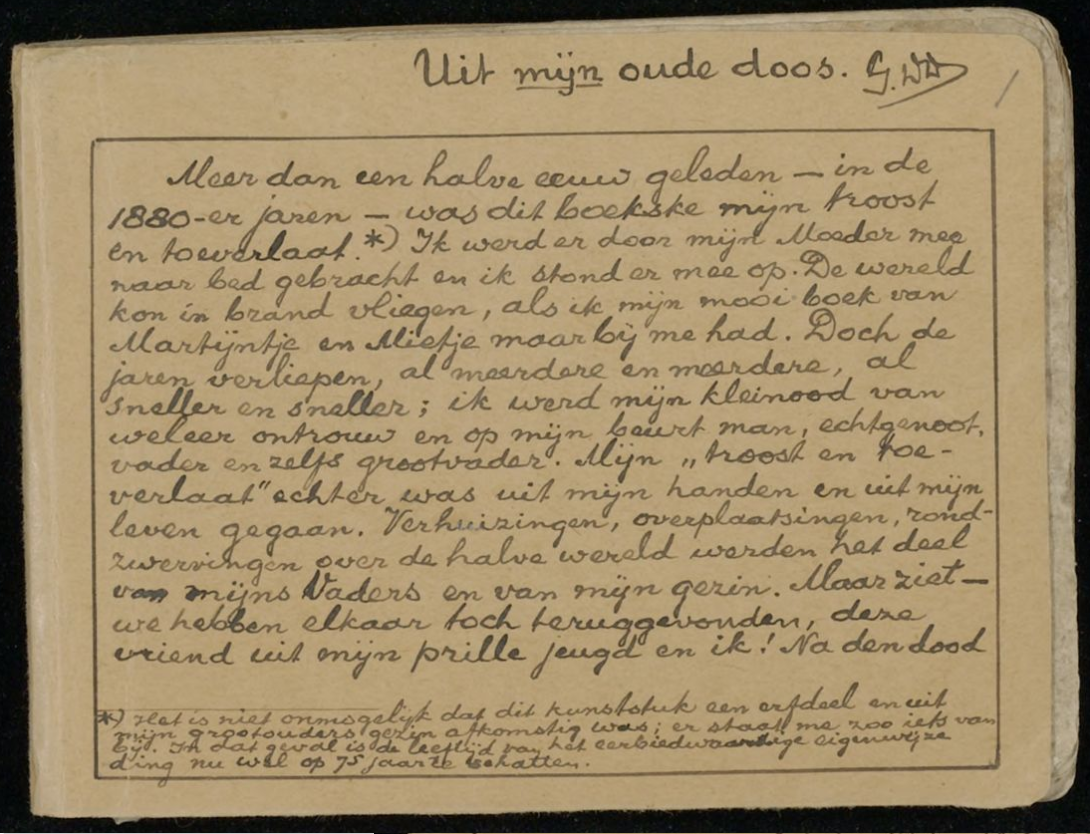 Uit mijn oude doos. G.WD
/
Meer dan een halve eeuw geleden — in de
1880-er jaren — was dit boekske mijn troost
en toeverlaat.*) Ik werd er door mijn Moeder mee
naar bed gebracht en ik stond er mee op. De wereld
kon in brand vliegen, als ik mijn mooi boek van
Martijntje en Mietje maar bij me had. Doch de
jaren verliepen, al meerdere en meerdere, al
sneller en sneller; ik werd mijn kleinood van
weleer ontrouw en op mijn beurt man, echtgenoot,
vader en zelfs grootvader. Mijn „troost en toe-
verlaat" echter was uit mijn handen en uit mijn
leven gegaan. Verhuizingen, overplaatsingen, rond-
zwervingen over de halve wereld werden het deel
van mijns Vaders en van mijn gezin. Maar ziet —
we hebben elkaar toch teruggevonden, deze
vriend uit mijn prille jeugd en ik! Na den dood
*) Het is niet onmogelijk dat dit kunststuk een erfdeel en uit
mijn grootouders gezin afkomstig was; er staat me zoo iets van
bij. In dat geval is de leeftijd van het eerbiedwaardige eigenwijze
ding nu wel op 75 jaar te schatten.